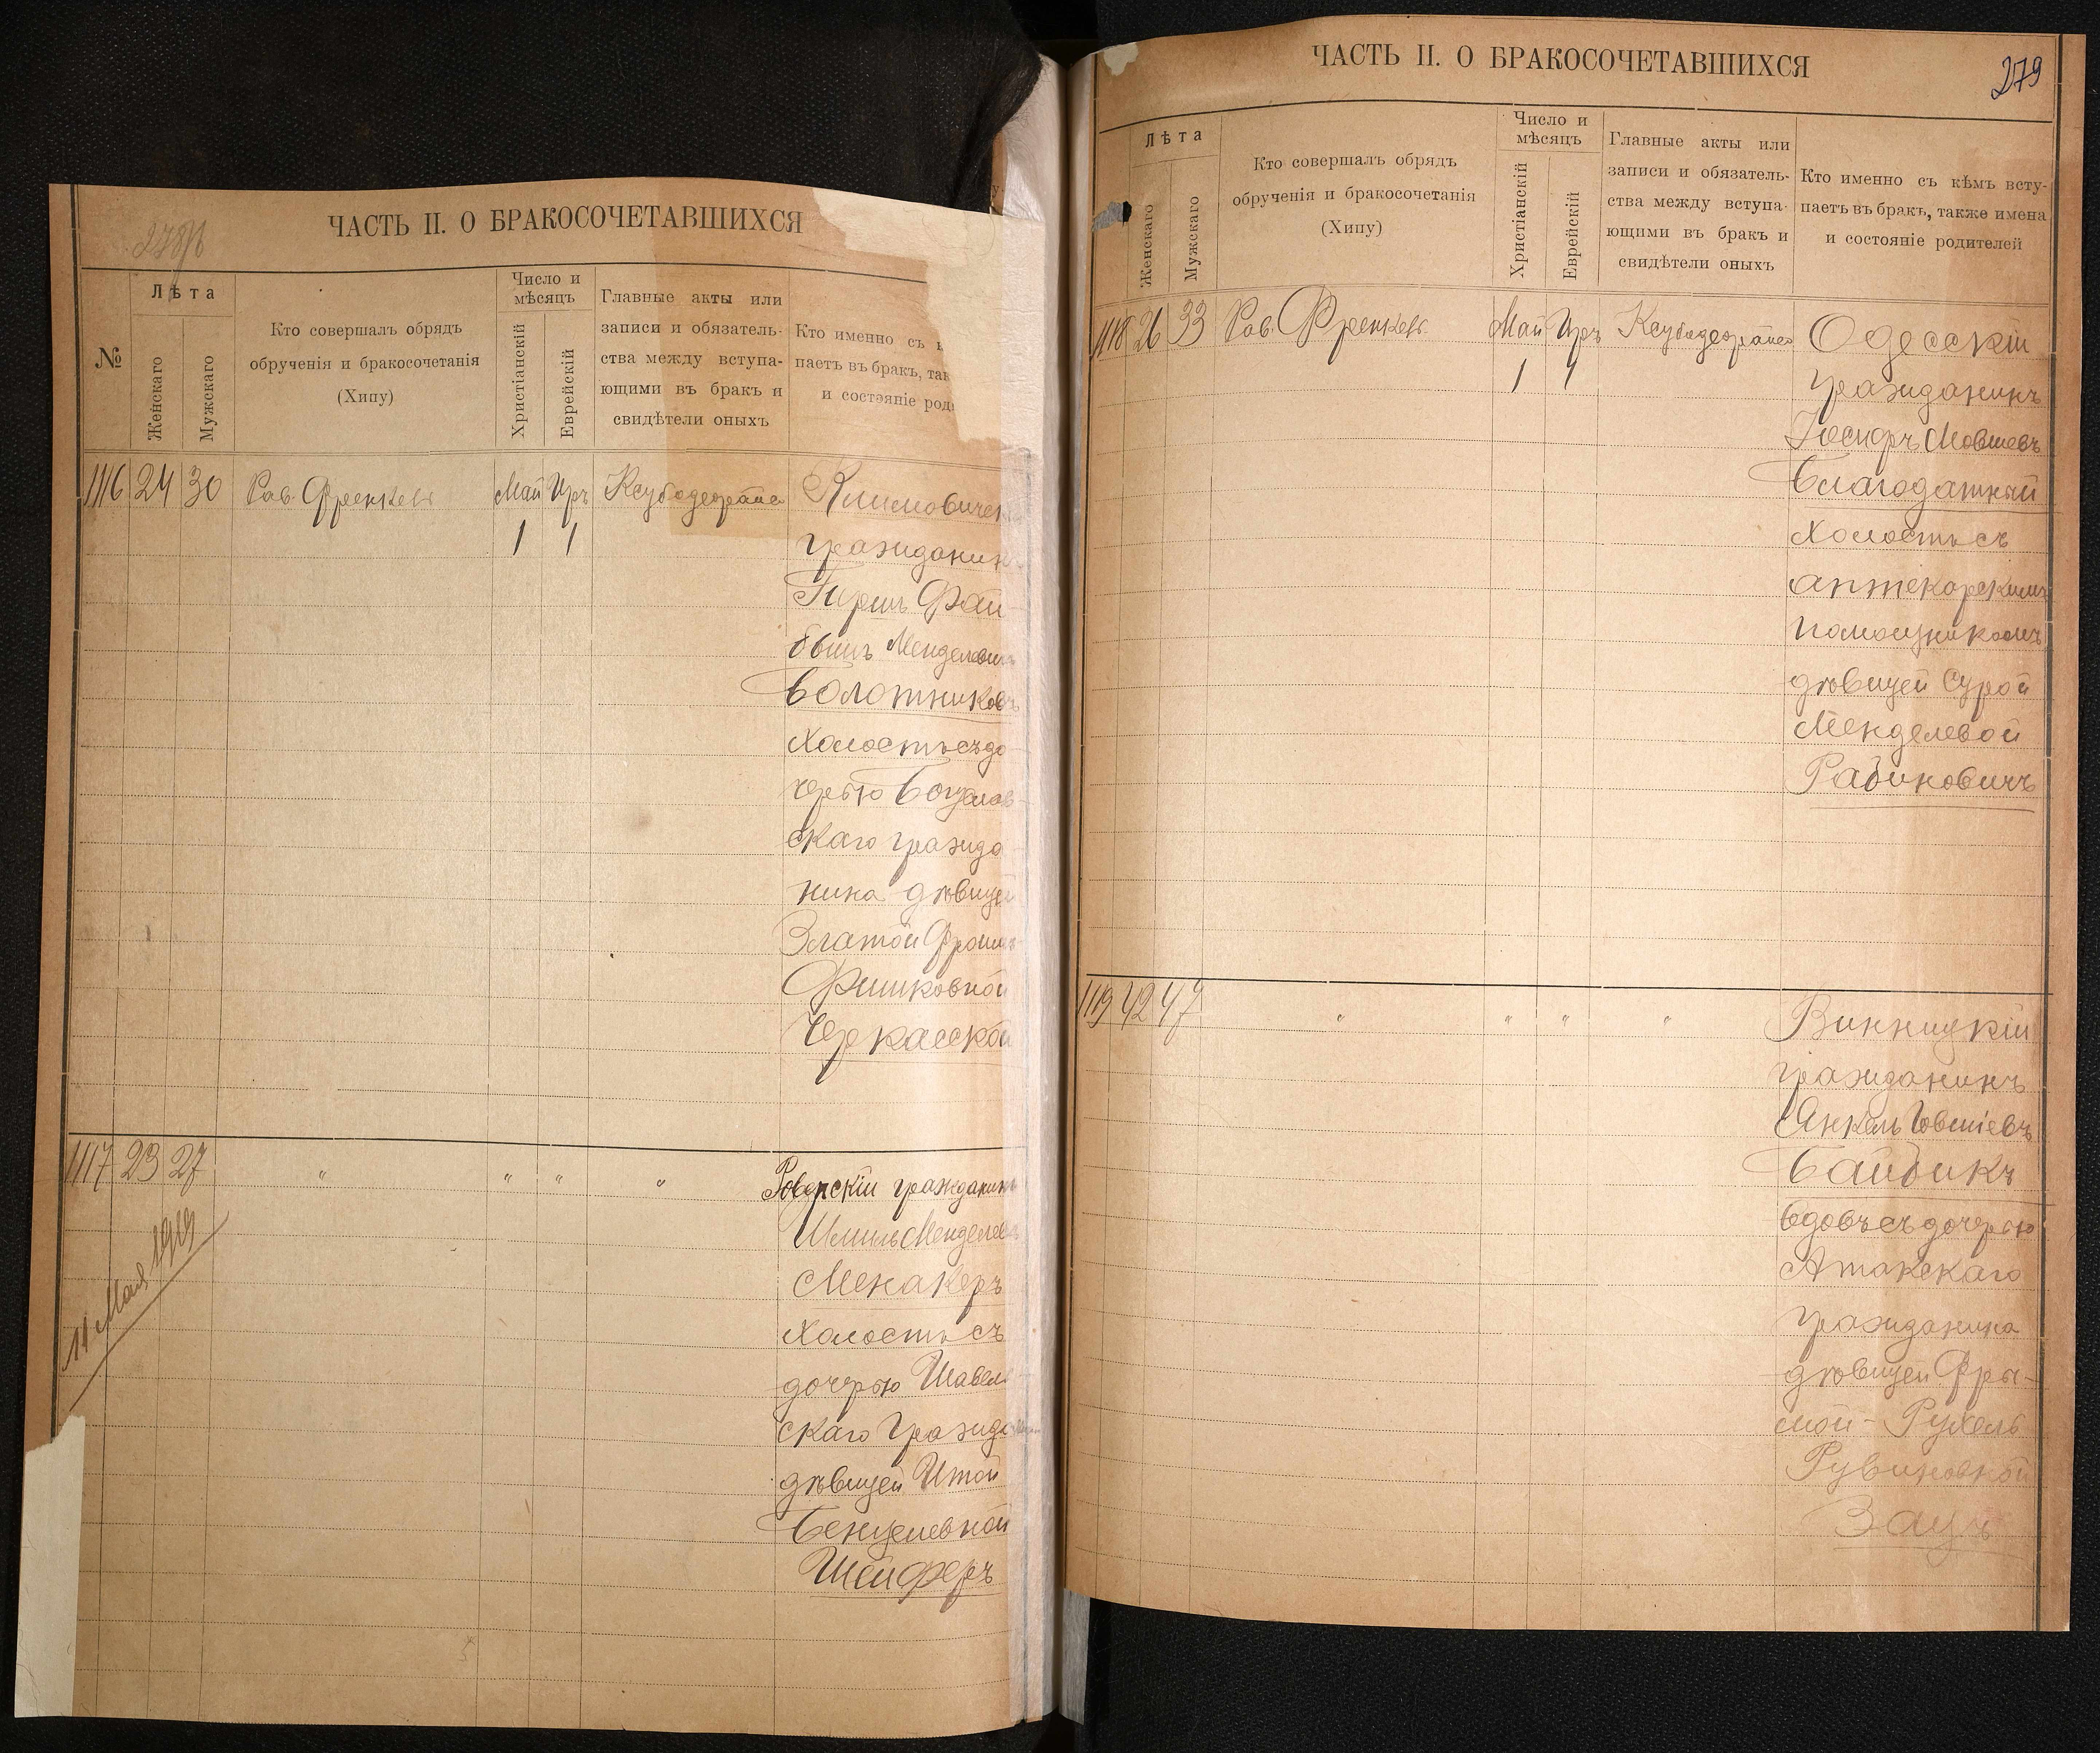 ЧАСТЬ II. О БРАКОСОЧЕТАВШИХСЯ
№
Лѣта
Женскаго
Мужскаго
Кто совершалъ обрядъ
обрученія и бракосочетанія
(Хипу)
Число и
мѣсяцъ
Христіанскій
Еврейскій
Главные акты или
записи и обязатель-
ства между вступа-
ющими въ бракъ и
свидѣтели оныхъ
Кто именно съ
паетъ въ бракъ, так
и состэяніе род
1116 24 30 Рав. Френкель Май Иръ
1 1
Климовичск
гражданин
Гирш Фай
бышъ Менделевичъ
Болотниковъ
холостъ съ до
черью Богуслав-
скаго гражда
нина дѣвицей
Златой Фрои
Фишковной
Черкасской
1117 23 27 " " " " Ровенскій гражданинъ
Шмиль Менделевъ
Менакеръ
холостъ съ
дочерью Шавель
скаго гражда
дѣвицей Итой
Бенцелевной
Шейферъ
11 Мая 1919
ЧАСТЬ II. О БРАКОСОЧЕТАВШИХСЯ
279
Лѣта
Женскаго
Мужскаго
Кто совершалъ обрядъ
обрученія и бракосочетанія
(Хипу)
Число и
мѣсяцъ
Христіанскій
Еврейскій
Главные акты или
записи и обязатель-
ства между вступа-
ющими въ бракъ и
свидѣтели оныхъ
Кто именно съ кѣмъ всту-
паетъ въ бракъ, также имена
и состояніе родителей
1118 26 33 Рав. Френкель Май Иръ Одесскій
1 1 гражданинъ
Іосифъ Мовшевъ
Благодатный
холостъ съ
аптекарскимъ
помощникомъ
дѣвицей Сурой
Менделевой
Рабиновичъ
1119 42 47 " " " " Винницкій
гражданинъ
Янкель Іовшіевъ
Байбикъ
вдовъ съ дочерью
Атакскаго
гражданина
дѣвицей Фры-
мой-Рухель
Рувиновной
Зацъ